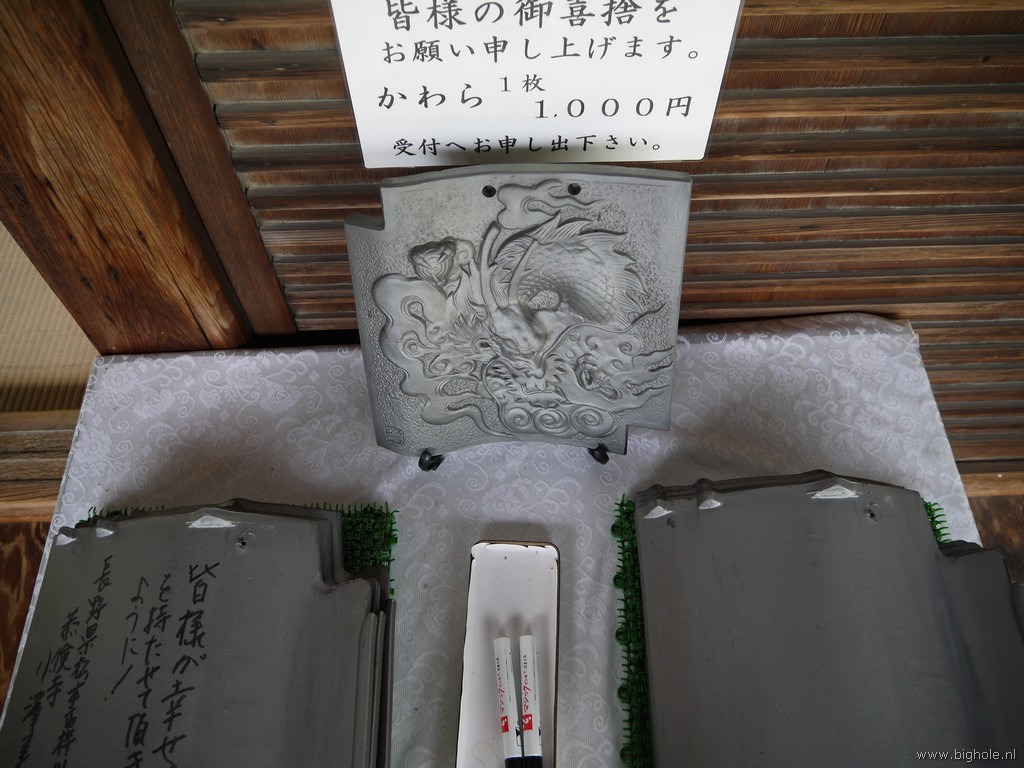 皆様の御喜捨を
お願い申し上げます。
かわら1枚
1,000円
受付へお申し出下さい。
皆様が幸せ
を持たせて頂き
ように!
長野県
www.bighole.nl